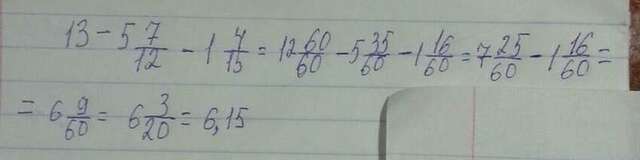 13 - 5 7/12 - 1 4/15 = 12 60/60 - 5 35/60 - 1 16/60 = 7 25/60 - 1 16/60 =
= 6 9/60 = 6 3/20 = 6,15